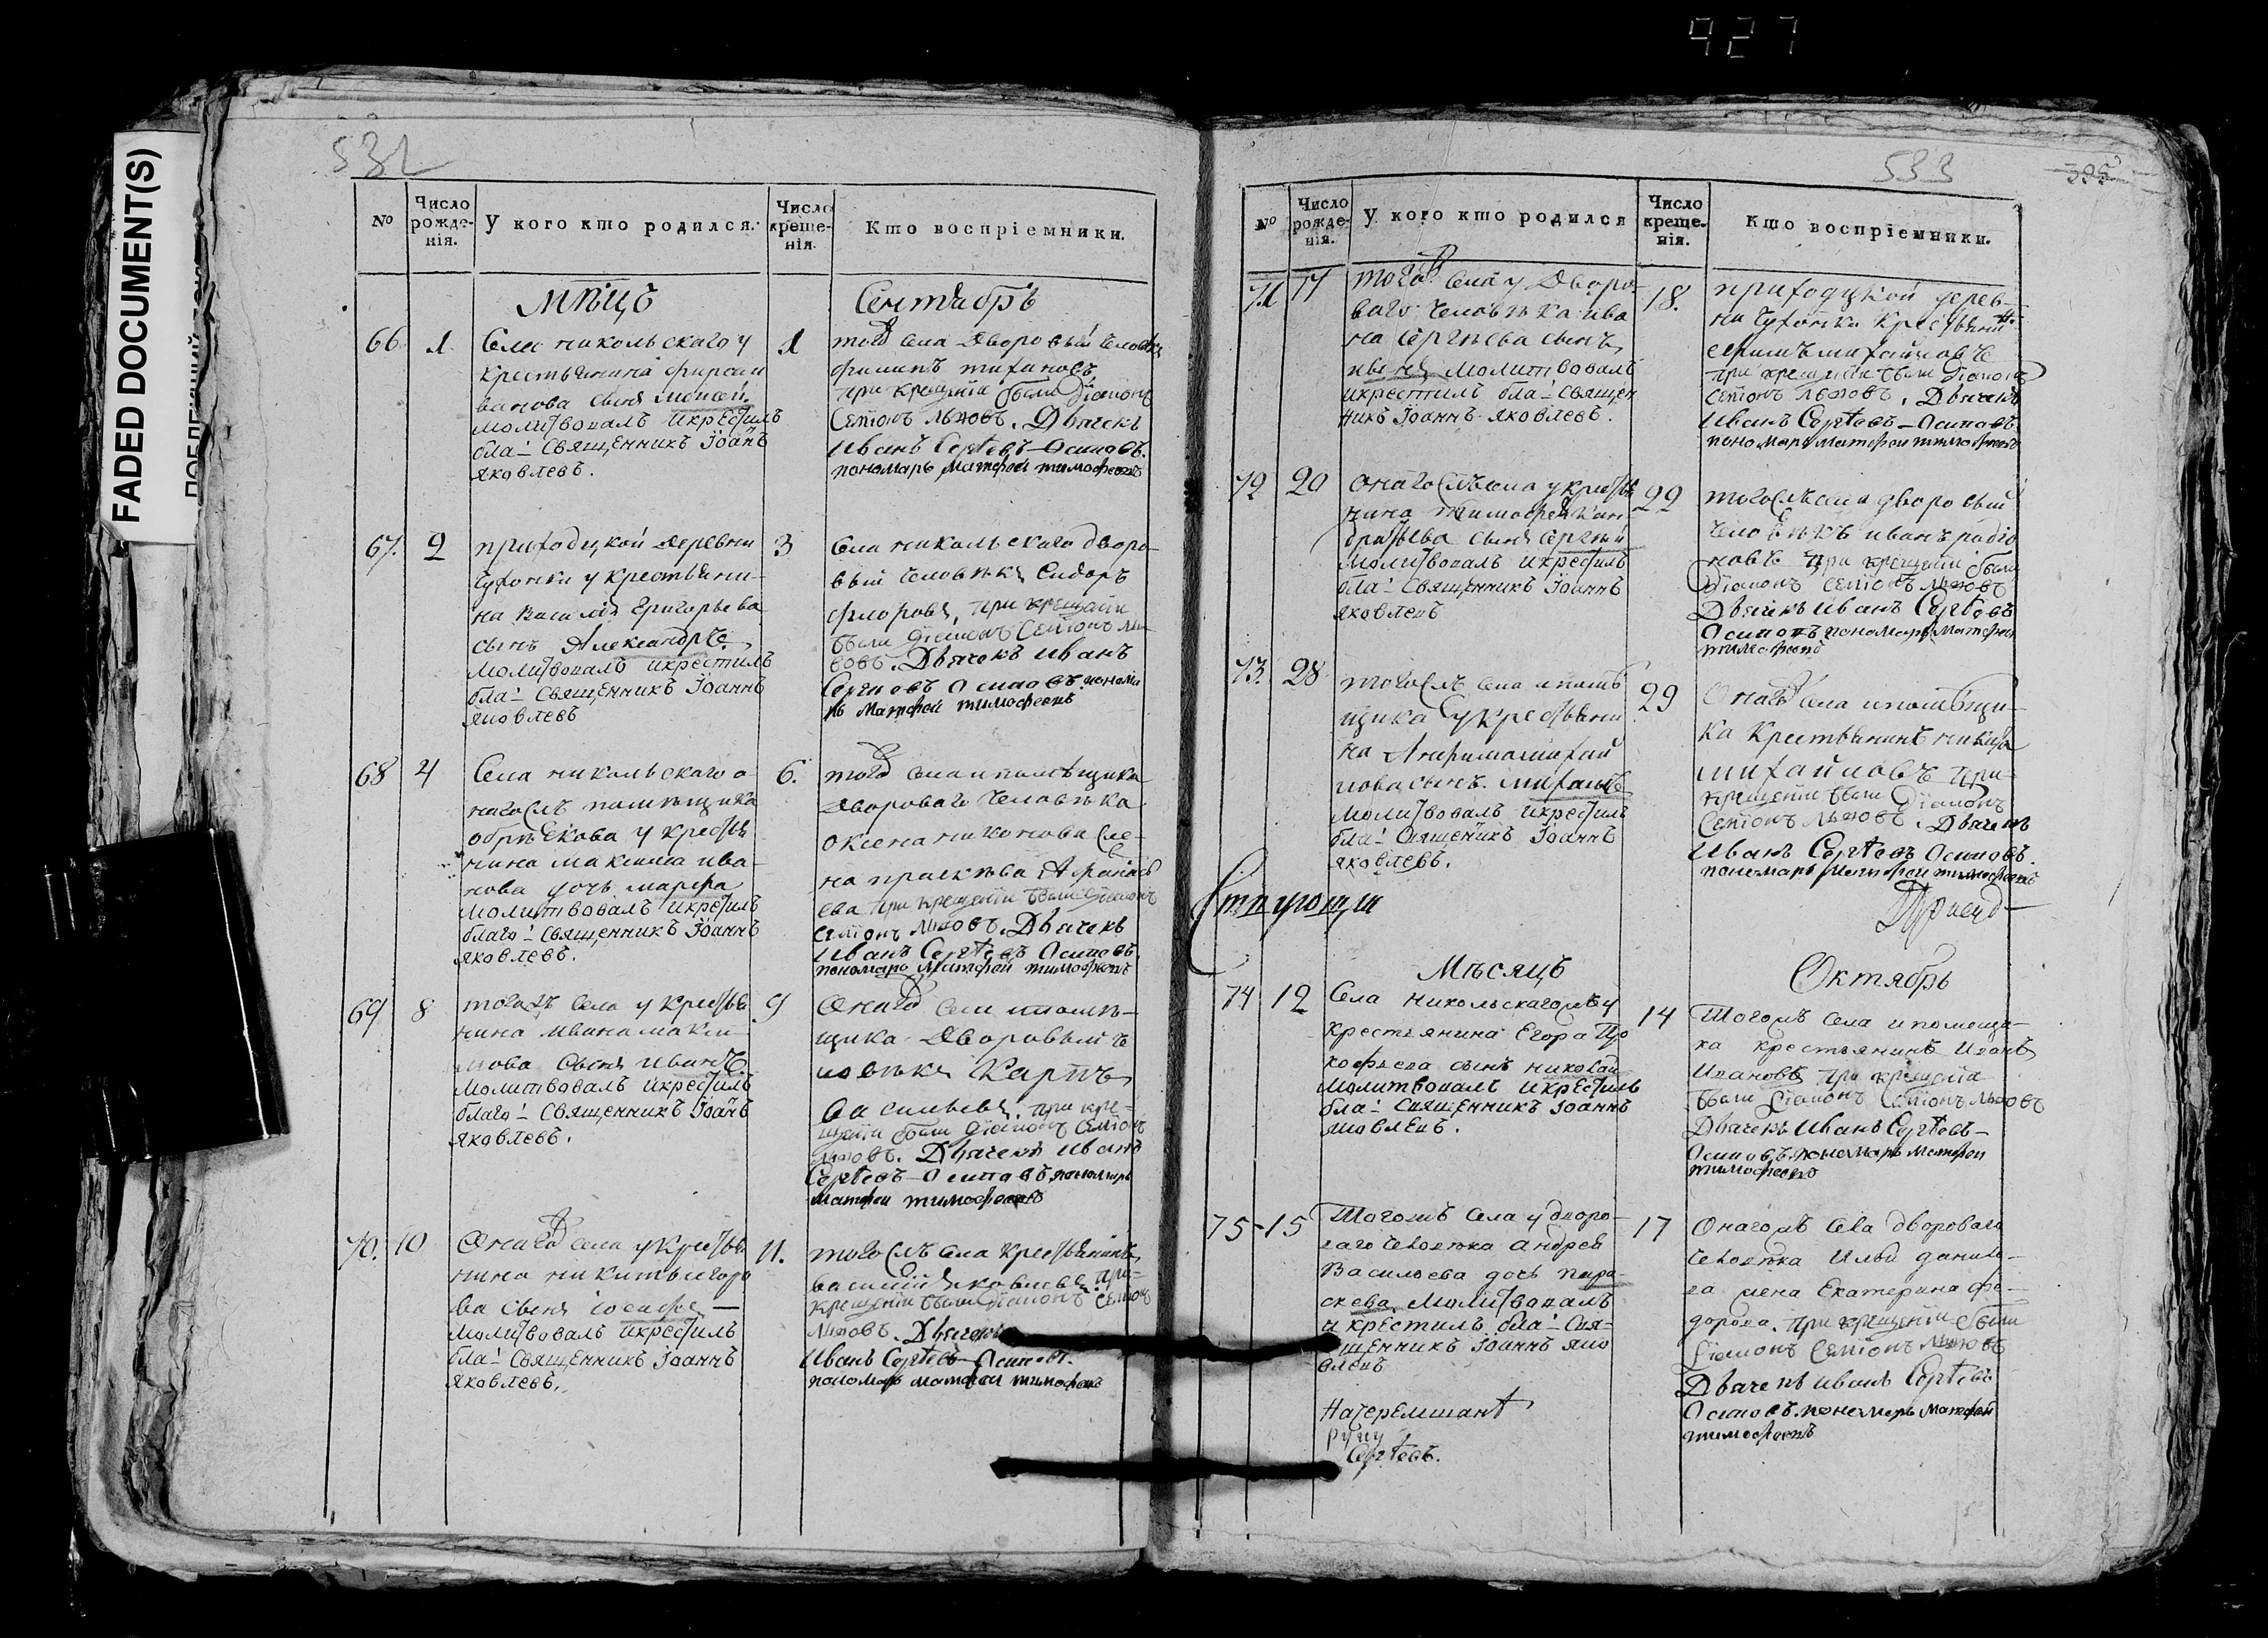 927
FADED DOCUMENT(S)
532
№
Число рожденія.
У кого кто родился.
Число крещенія.
Кто воспріемники.
Мѣцъ
Сентябрь
66
1
Села никольскаго у
крестьянина фирса и
ванова сынъ
молитвовалъ икрестилъ
бла: священникъ Іоаннъ
яковлевъ.
1
тогѡ села дворовый человѣкъ
филипъ тихановъ
при крещеніи были діаконъ
семіонъ львовъ. Дьячекъ
Иванъ Сергѣевъ Осиповъ.
пономарь матфей тимофеевъ
67.
2
приходцкой деревни
Чухонки у крестьяни-
на василія григорьева
сынъ Александръ
молитвовалъ икрестилъ
бла: священникъ Іоаннъ
яковлевъ
3
села никольскаго дворо-
вый человѣкъ Сидоръ
флоровъ, при крещеніи
были діаконъ семіонъ ль-
вовъ. Дьячекъ иванъ
Сергѣевъ Осиповъ. понома
рь матфей тимофеевъ
68
4
Села никольскаго о-
нагожъ помѣщика
обрѣскова у крестья
нина максима ива-
нова дочь марфа
молитвовалъ икрестилъ
благо: священникъ Іоаннъ
яковлевъ.
6.
тогѡ села ипомѣщика
двороваго человѣка
никонова же-
на Афанась
ева при крещеніи были діаконъ
семіонъ львовъ. Дьячекъ
Иванъ Сергѣевъ Осиповъ.
пономарь матфей тимофеевъ
69
8
тогожъ села у крестья
нина ивана макси-
мова сынъ иванъ
молитвовалъ икрестилъ
благо: священникъ Іоаннъ
яковлевъ.
9
Онагѡ села ипомѣ-
щика дворовый че
ловѣкъ Карпъ
васильевъ. при кре-
щеніи были діаконъ семіонъ
львовъ. Дьячекъ иванъ
Сергѣевъ Осиповъ пономарь
матфей тимофеевъ
70.
10
Онагѡ села у крестья
нина никиты егоро
ва сынъ іосифъ
молитвовалъ икрестилъ
бла: священникъ Іоаннъ
яковлевъ.
11.
тогожъ села крестьянинъ
василій яковлевъ. при
крещеніи были діаконъ семіонъ
львовъ. Дьячекъ
Иванъ Сергѣевъ Осиповъ.
пономарь матфей тимофеевъ
533
395
№
Число рожденія.
У кого кто родился
Число крещенія.
Кто воспріемники.
71
17
тогѡ села у Дворо-
ваго человѣка ива
на сергѣева сынъ
молитвовалъ
икрестилъ бла: священ
никъ Іоаннъ яковлевъ.
18.
приходцкой дерев-
ни Чухонки крестьянинъ
михайловъ
при крещеніи были діаконъ
семіонъ львовъ. Дьячекъ
Иванъ Сергѣевъ Осиповъ.
пономарь матфей тимофеевъ
72
20
онагожъ села у крестья
нина тимофея кон-
дратьева сынъ сергѣй
молитвовалъ икрестилъ
бла: священникъ Іоаннъ
яковлевъ
22
тогожъ села дворовый
человѣкъ иванъ родіо
новъ при крещеніи были
діаконъ семіонъ львовъ
Дьячекъ иванъ Сергѣевъ
Осиповъ пономарь матфей
тимофеевъ
73.
28
тогожъ села ипомѣ
щика у крестьяни
на михай
лова сынъ михаилъ
молитвовалъ икрестилъ
бла: священикъ Іоаннъ
яковлевъ.
29
Онагѡ села ипомѣщи-
ка крестьянинъ никита
михайловъ при
крещеніи были діаконъ
семіонъ львовъ. Дьячекъ
Иванъ Сергѣевъ Осиповъ.
пономарь матфей тимофеевъ
Мѣсяцъ
Октябрь
74
12
Села никольскагожъ у
крестьянина Егора Про
кофьева сынъ николай
молитвовалъ икрестилъ
бла: священникъ Іоаннъ
яковлевъ.
14
Тогожъ села и помещи-
ка крестьянинъ Иванъ
Ивановъ при крещеніи
были діаконъ семіонъ львовъ
Дьячекъ Иванъ Сергѣевъ
Осиповъ. пономарь матфей
тимофеевъ
75
15
Тогожъ села у дворо-
ваго человѣка Андрея
Васильева дочь пара-
скева. молитвовалъ
и крестилъ бла: свя-
щенникъ Іоаннъ яко
влевъ
17
Онагожъ села двороваго
человѣка Ильи данило-
ва жена Екатерина фе-
дорова. при крещеніи были
діаконъ семіонъ львовъ
Дьячекъ иванъ Сергѣевъ
Осиповъ. пономарь матфей
тимофеевъ
Сергѣевъ.